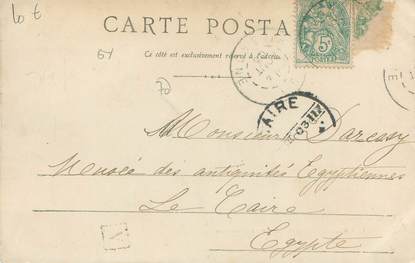 10 €
CARTE POSTA
Ce côté est exclusivement réservé à l'adresse
5c
AIRE
Monsieur
Musée des antiquités Egyptiennes
Le Caire
Egypte